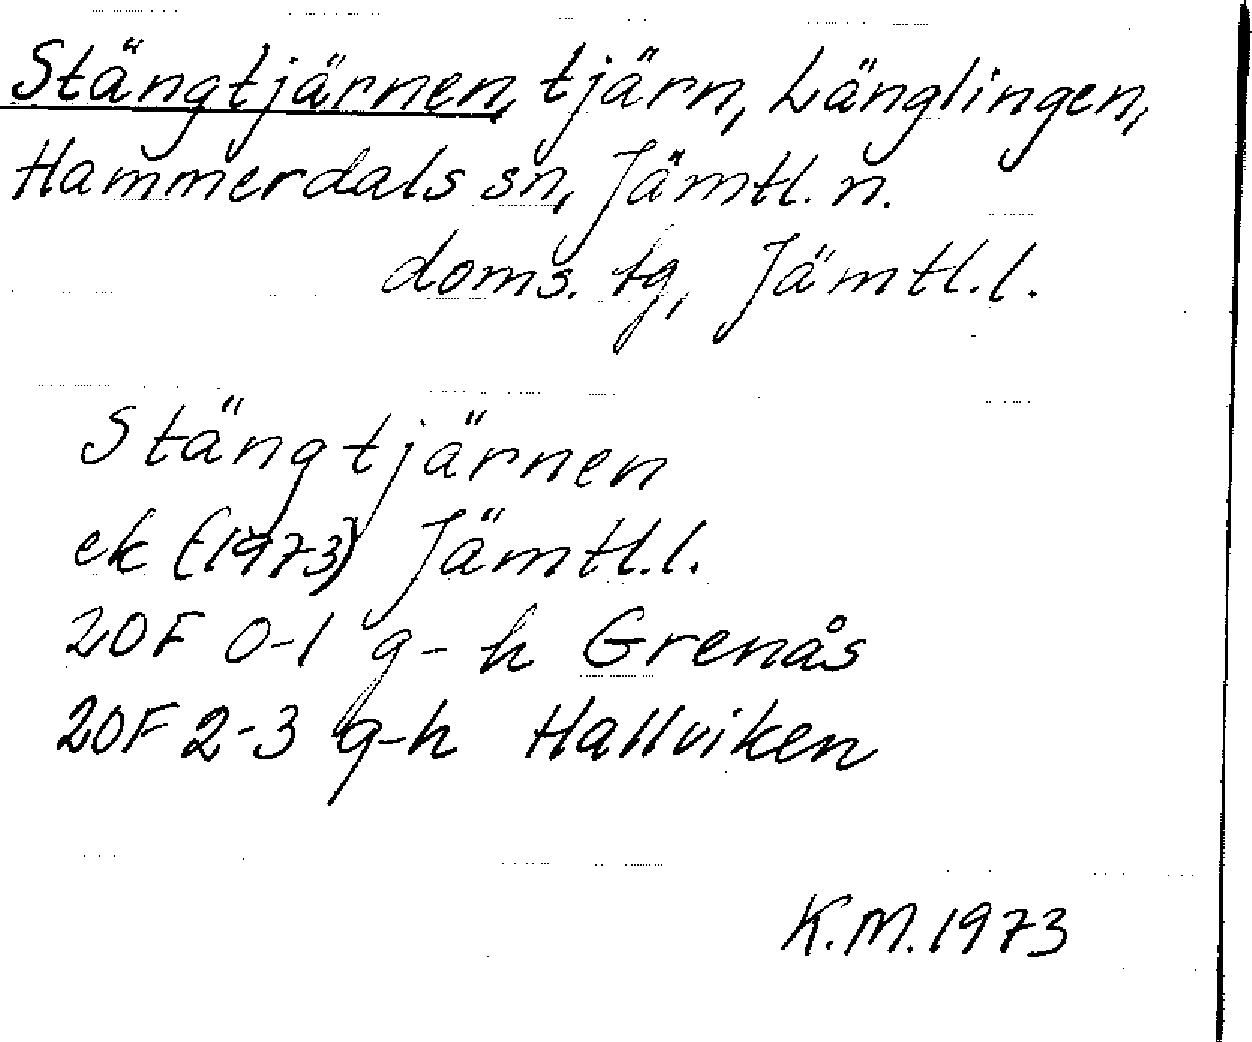 Stängtjärnen, tjärn, Länglingen,
Hammerdals sn, Jämtl. n.
doms. tg, Jämtl. l.
Stängtjärnen
ek (1973) Jämtl. l.
20F 0-1 g-h Grenås
20F 2-3 g-h Hallviken
K.M. 1973